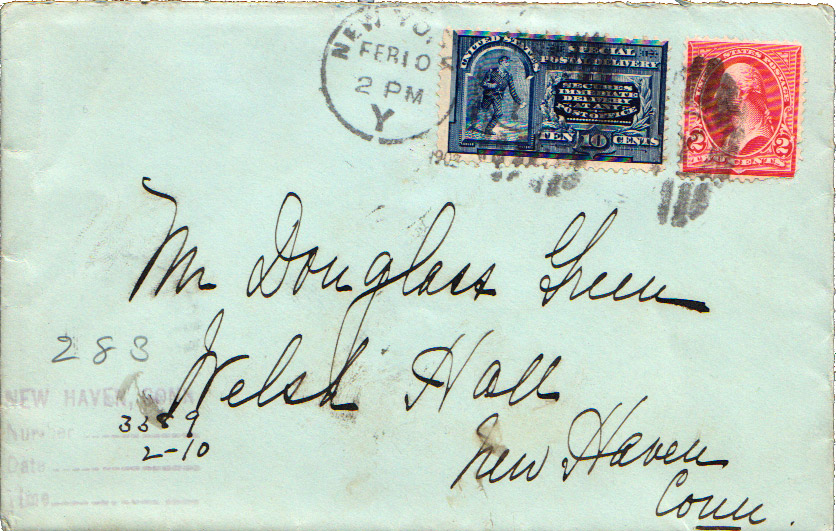 NEW YO
FEB 10
2 PM
Y
190
UNITED STATES
SPECIAL
POSTAL DELIVERY
SECURES
IMMEDIATE
DELIVERY
AT ANY
POST OFFICE
TEN 10 CENTS
2 2
Mr Douglass Green
Welsh Hall
New Haven
Conn.
283
NEW HAVEN, CONN
Number
3389
Date
2-10
Time